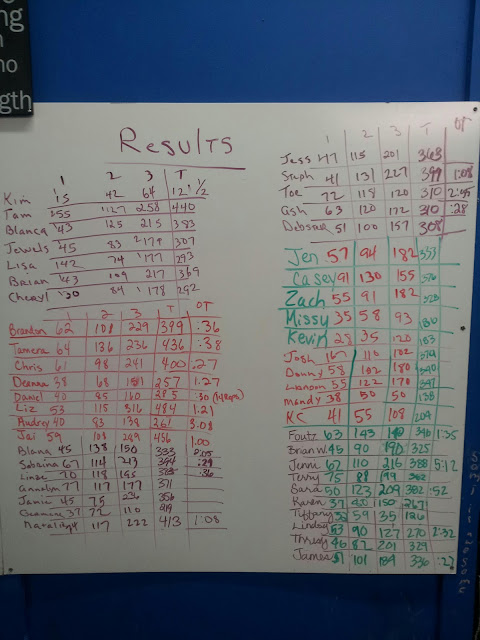 ng
no
gth
Results
1 2 3 T
Kim 15 42 64 121 1/2
Tam 255 127 258 440
Blanca 43 125 215 383
Jewels 45 83 179 307
Lisa 142 74 177 293
Brian 43 109 217 369
Cheryl 30 84 178 292
1 2 3 T OT
Brandon 62 108 229 399 :36
Tamera 64 136 236 436 .38
Chris 61 98 241 400 :27
Deanna 38 68 151 257 1.27
Daniel 40 85 160 285 :30
Liz 53 115 316 484 1.21
Audrey 40 83 138 261 3.08
Jai 59 108 289 456 1.00
Blana 45 138 150 333 2:05
Sabrina 67 114 213 394 :29
Linze 70 118 195 383 :36
Annalyn 77 117 177 371
Janie 45 75 236 356
Guannia 37 72 110 219
117 222 413 1:08
1 2 3 T OT
Jess 47 115 201 363
Steph 41 131 227 399 1:08
Toe 72 118 120 310 2:45
Ash 63 120 172 310 :28
Debsaa 51 100 157 308
Jen 57 94 182 333
Casey 91 130 155 376
Zach 55 91 182 328
Missy 35 58 93 186
Kevin 28 35 120 183
Josh 167 110 102 379
Donny 58 102 180 340
55 122 170 347
Mandy 38 50 50 138
KC 41 55 108 204
Foutz 63 143 140 346 1:35
Brian W. 45 90 190 325
Jenni 62 110 216 388 5:12
Terry 75 88 199 362
Sara 50 123 209 382 :52
Karen 37 80 150 267
Tiffany 32 59 35 126
Lindsay 53 90 127 270 2:32
Thresa 46 82 201 329
James 51 101 184 336 :27